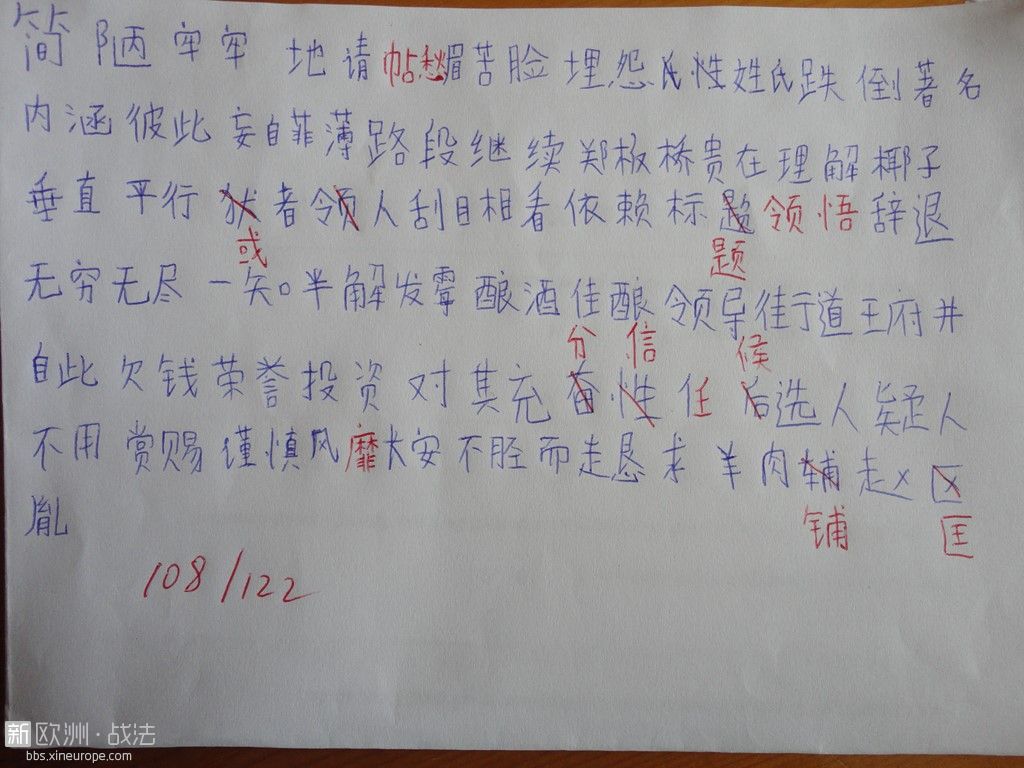 简陋 牢牢 地 请帖 愁眉苦脸 埋怨 氏性 姓氏 跌倒 著名
内涵 彼此 妄自菲薄 路段 继续 郑板桥 贵在 理解 椰子
垂直 平行 者 领人 刮目相看 依赖 标题 领悟 辞退
或 题
无穷无尽 一知半解 发霉 酿酒 佳酿 领导 街道 王府井
分 信 候
自此 欠钱 荣誉 投资 对其 充奋 性任 后选人 疑人
不用 赏赐 谨慎 风靡 长安 不胫而走 恳求 羊肉辅 赵 区
铺 匡
胤
108/122
新欧洲·战法
bbs.xineurope.com